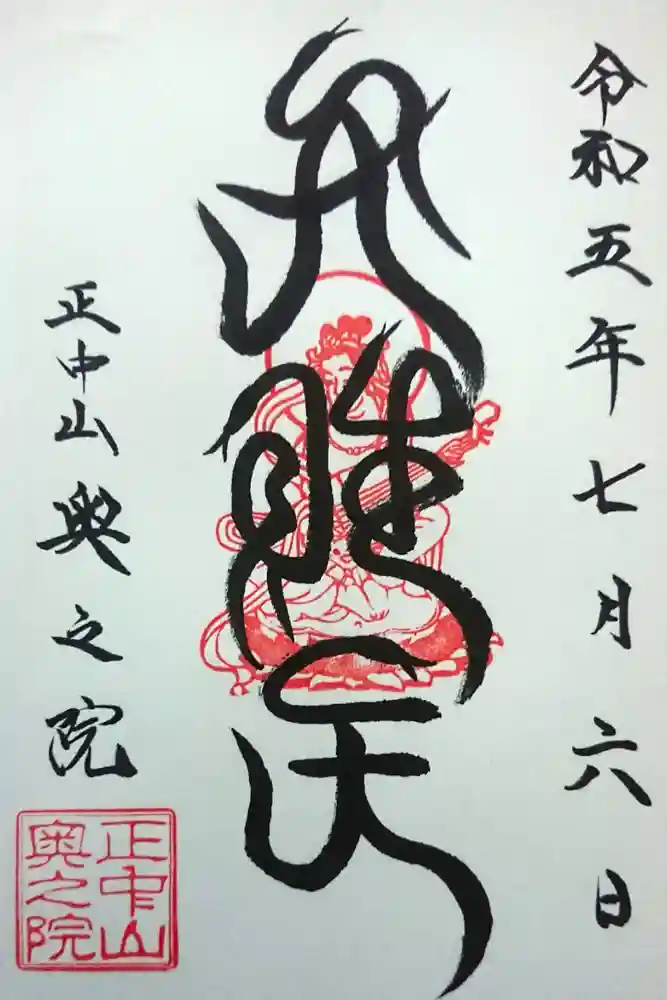 令和五年七月六日
弁財天
正中山奥之院
正中山
奥之院